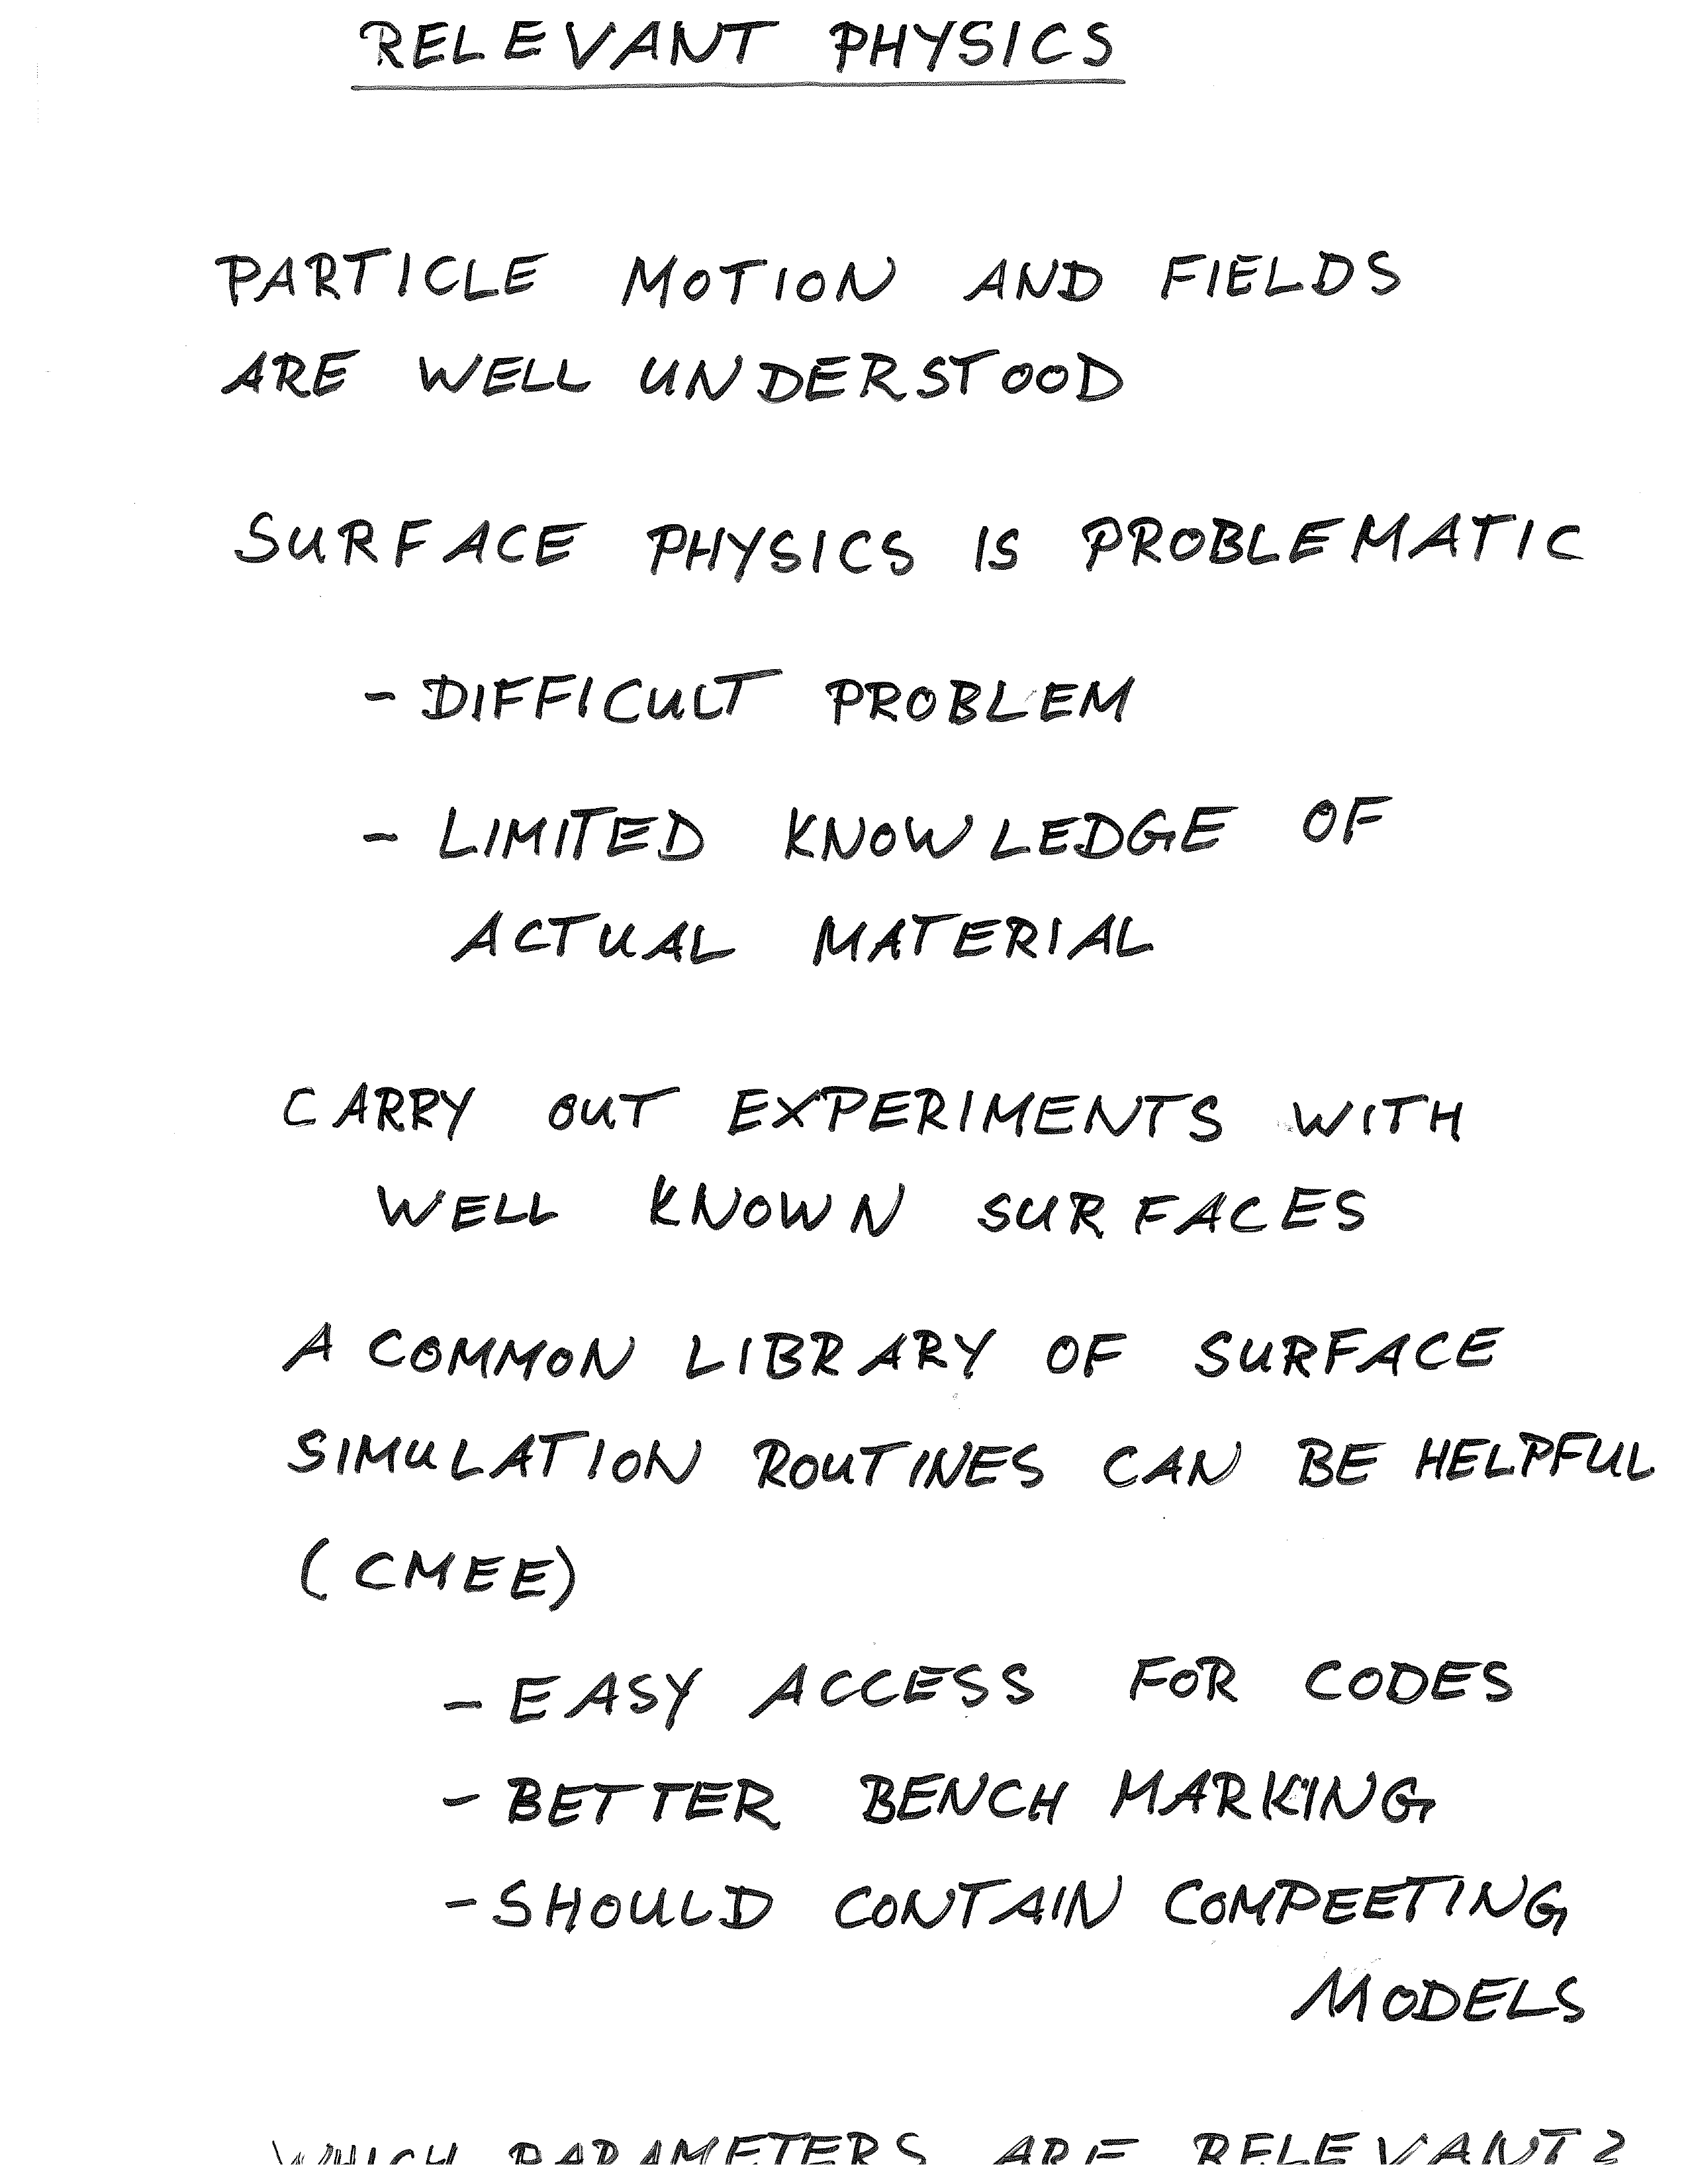 RELEVANT PHYSICS
PARTICLE MOTION AND FIELDS
ARE WELL UNDERSTOOD
SURFACE PHYSICS IS PROBLEMATIC
- DIFFICULT PROBLEM
- LIMITED KNOWLEDGE OF
ACTUAL MATERIAL
CARRY OUT EXPERIMENTS WITH
WELL KNOWN SURFACES
A COMMON LIBRARY OF SURFACE
SIMULATION ROUTINES CAN BE HELPFUL
(CMEE)
- EASY ACCESS FOR CODES
- BETTER BENCH MARKING
- SHOULD CONTAIN COMPEETING
MODELS
WHICH PARAMETERS ARE RELEVANT?